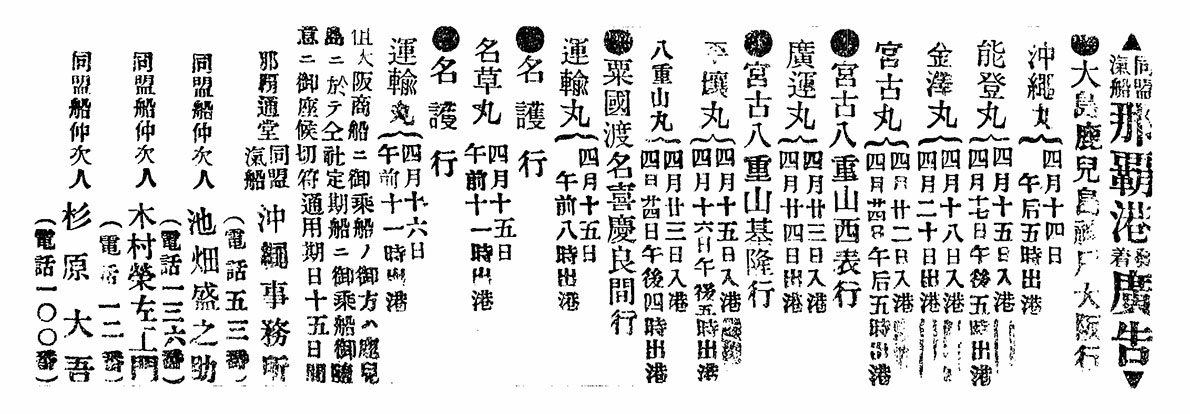 ▲同盟汽船那覇港發着廣告▼
●大島鹿兒島神戸大阪行
沖繩丸 四月十四日午后五時出港
能登丸 四月十五日入港 四月十七日午後五時出港
金澤丸 四月十八日入港 四月二十日出港
宮古丸 四月廿二日入港 四月廿四日午后五時出港
●宮古八重山西表行
廣運丸 四月廿三日入港 四月廿四日出港
平壤丸 四月十五日入港 四月十六日午後五時出港
八重山丸 四月廿三日入港 四月廿四日午後四時出港
●宮古八重山基隆行
●粟國渡名喜慶良間行
運輸丸 四月十五日午前八時出港
●名護行
名草丸 四月十五日午前十一時出港
●名護行
運輸丸 四月十六日午前十一時出港
但大阪商船ニ御乘船ノ御方ハ鹿兒
島ニ於テ仝社定期船ニ御乘船御隨
意ニ御座候切符通用期日十五日間
那覇通堂 同盟汽船 沖繩事務所
(電話五三番)
同盟船仲次人 池畑盛之助
(電話一三六番)
同盟船仲次人 木村榮左工門
(電話一二番)
同盟船仲次人 杉原大吾
(電話一〇〇番)